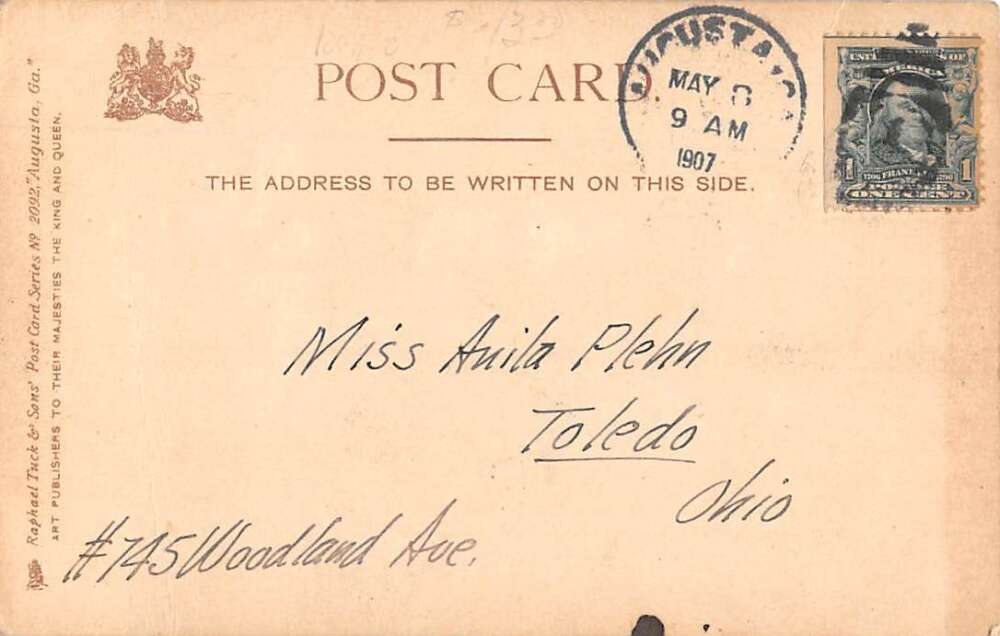 POST CARD.
THE ADDRESS TO BE WRITTEN ON THIS SIDE.
AUGUSTA, GA
MAY 8
9 AM
1907
1706 FRANKLIN 1790
1 1
POSTAGE
ONE CENT
Miss Anita Plehn
Toledo
Ohio
#745 Woodland Ave.
Raphael Tuck & Sons' Post Card Series Nº 2092, "Augusta, Ga."
ART PUBLISHERS TO THEIR MAJESTIES THE KING AND QUEEN.